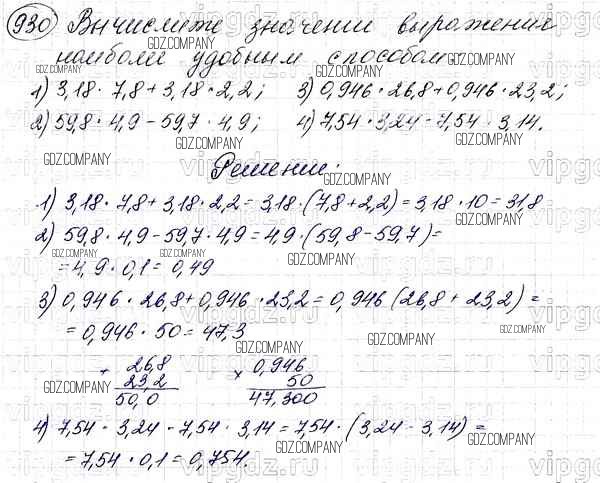 930 Вычислите значении выражения
наиболее удобным способом.
1) 3,18 · 7,8 + 3,18 · 2,2; 3) 0,946 · 26,8 + 0,946 · 23,2;
2) 59,8 · 4,9 – 59,7 · 4,9; 4) 7,54 · 3,24 – 7,54 · 3,14.
Решении:
1) 3,18 · 7,8 + 3,18 · 2,2 = 3,18 · (7,8 + 2,2) = 3,18 · 10 = 31,8
2) 59,8 · 4,9 – 59,7 · 4,9 = 4,9 · (59,8 – 59,7) =
= 4,9 · 0,1 = 0,49
3) 0,946 · 26,8 + 0,946 · 23,2 = 0,946 (26,8 + 23,2) =
= 0,946 · 50 = 47,3
+ 26,8 × 0,946
23,2 50
50,0 47,300
4) 7,54 · 3,24 - 7,54 · 3,14 = 7,54 · (3,24 - 3,14) =
= 7,54 · 0,1 = 0,754.
GDZ.COMPANY
vipgdz.ru